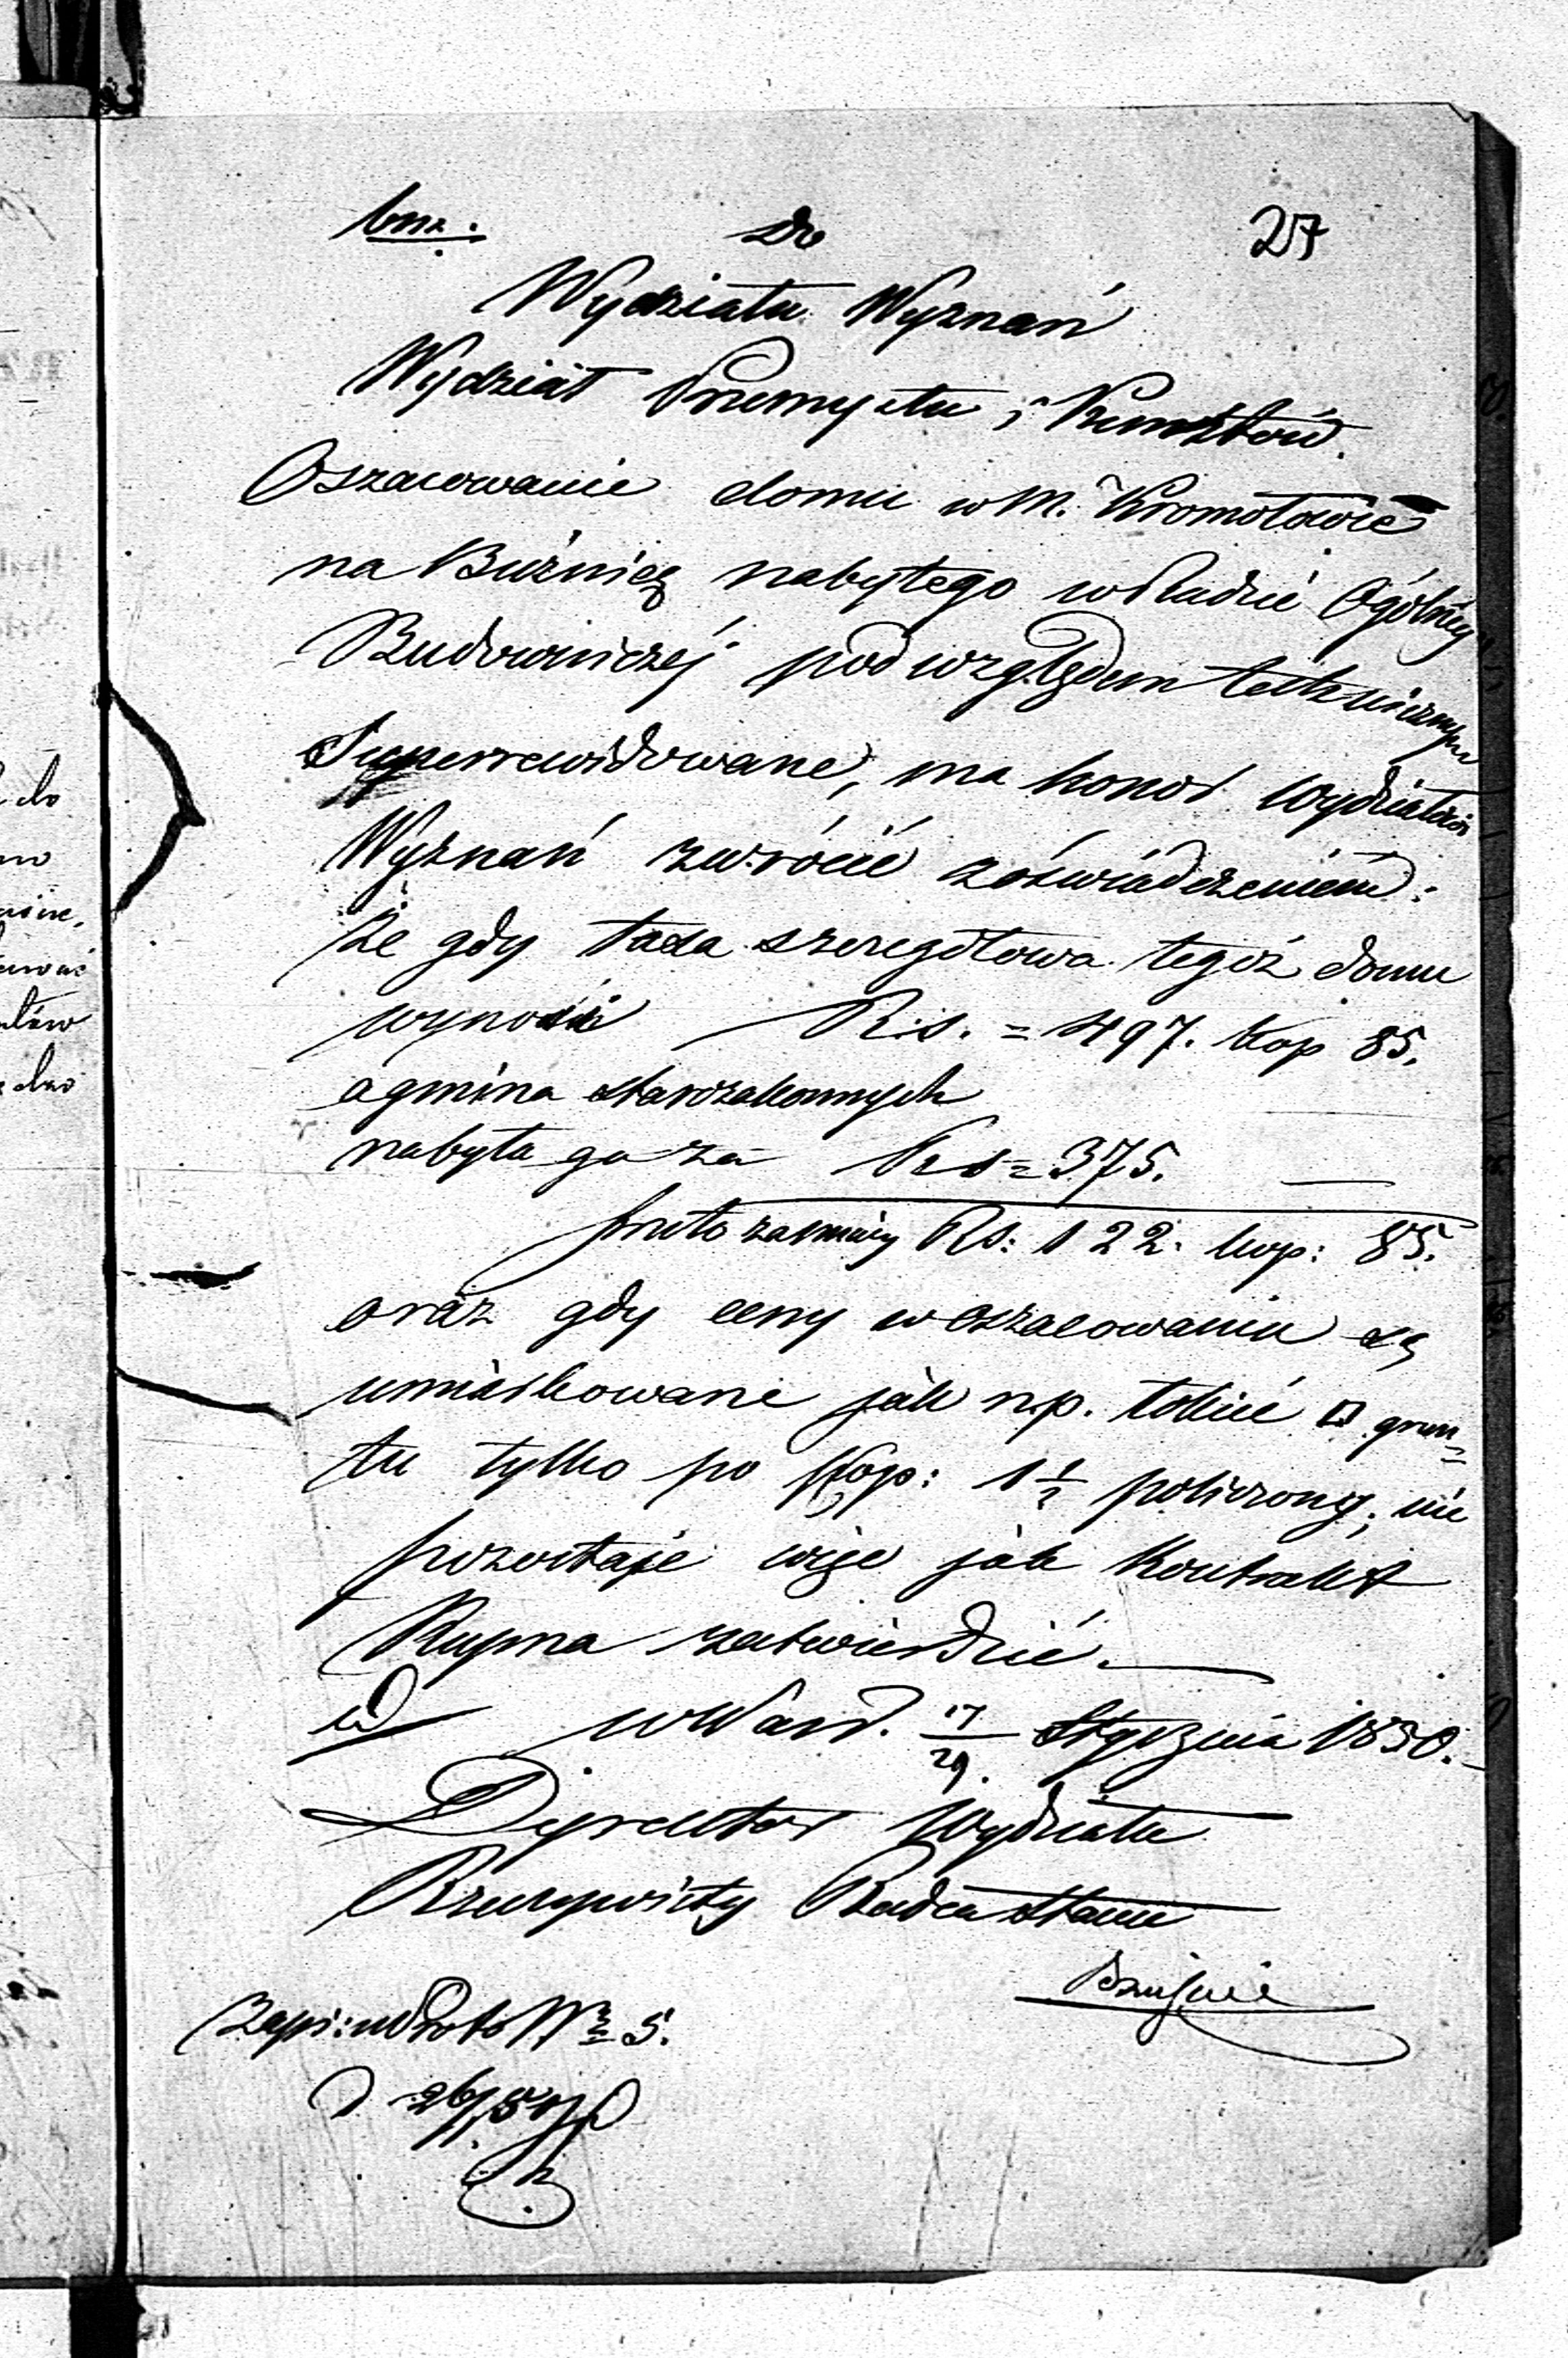 Do
27
Wydziału Wyznań
Wydział Przemysłu i Kunsztów.
Oszacowanie domu w M. Kromołowie
na Bużnicę nabytego w Radzie Ogólnéj
Budowniczéj pod względem technicznym
Superrewidowane, ma honor Wydziałowi
Wyznań zwrócić z oświadczeniem:
Że gdy taxa szczegółowa tegoż domu
wynosi Rs. = 497. kop 85.
a gmina starozakonnych
nabyła go za Rs = 375.
Rs: 122. kop: 85.
oraz gdy ceny w oszacowaniu są
umiarkowane jak n.p. łokieć □ grun=
tu tylko po kop: 1 1/2 policzony; nie
pozostaje więc jak Kontrakt
Kupna zatwierdzić.
w Warsz. 17/29. Stycznia 1850.
Dyrektor Wydziału
Rzeczywisty Radca Stanu
Zapi: w Proto No 5.